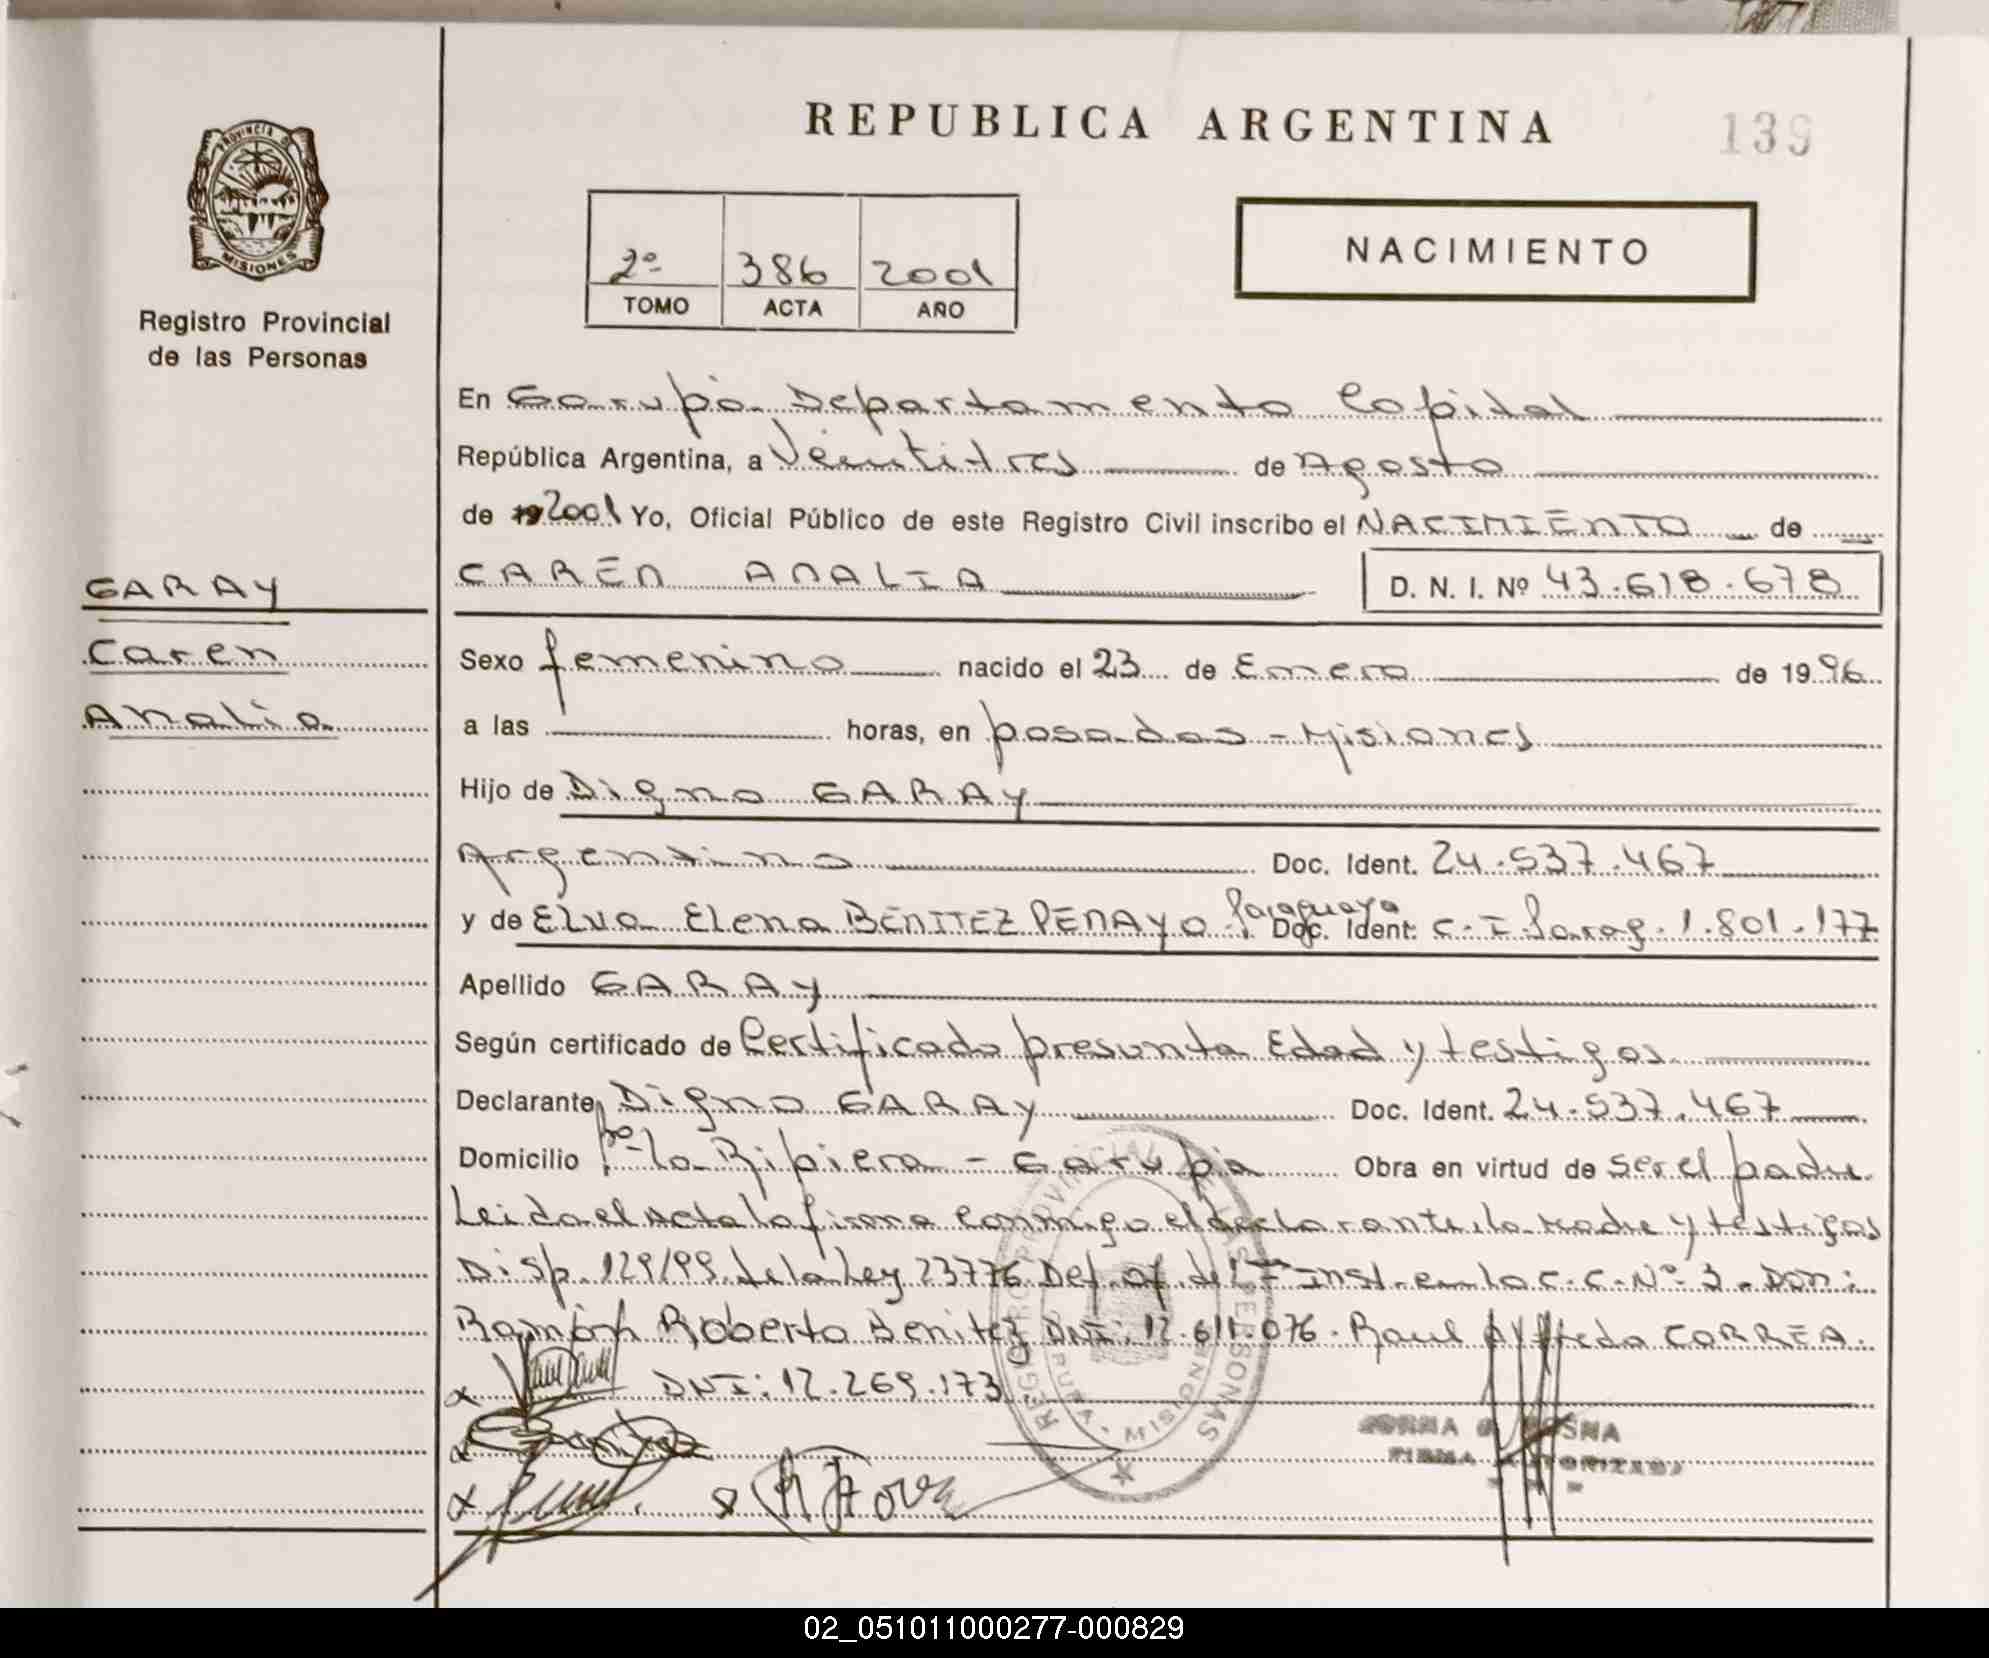 REPUBLICA ARGENTINA
139
PROVINCIA DE
MISIONES
Registro Provincial
de las Personas
2º 386 2001
TOMO ACTA AÑO
NACIMIENTO
En Garupá Departamento Capital
República Argentina, a Veintitres de Agosto
de 19 2001 Yo, Oficial Público de este Registro Civil inscribo el NACIMIENTO de
GARAY
CAREN ANALIA D. N. I. Nº 43.618.678
Caren
Sexo femenino nacido el 23 de Enero de 1996
Analia
a las horas, en posadas - Misiones
Hijo de Digno GARAY
Argentino Doc. Ident. 24.537.467
y de Elva Elena BENITEZ PENAYO Paraguaya Doc. Ident: C.I. Parag. 1.801.177
Apellido GARAY
Según certificado de Certificado presunta Edad y testigos
Declarante Digno GARAY Doc. Ident. 24.537.467
Domicilio Bº la Ribiera - Garupá Obra en virtud de ser el padre
Leida el Acta la firma conmigo el declarante, la Madre y testigos
Disp. 129/99 de la Ley 23776 Def. of. de 1ra Inst. en lo C.C. Nº 3 - Don:
Ramón Roberto Benitez DNI: 12.611.076. Raul Alfredo CORREA.
DNI: 12.269.173
REGISTRO PROVINCIAL DE LAS PERSONAS
MISIONES
FIRMA AUTORIZADA
02_051011000277-000829